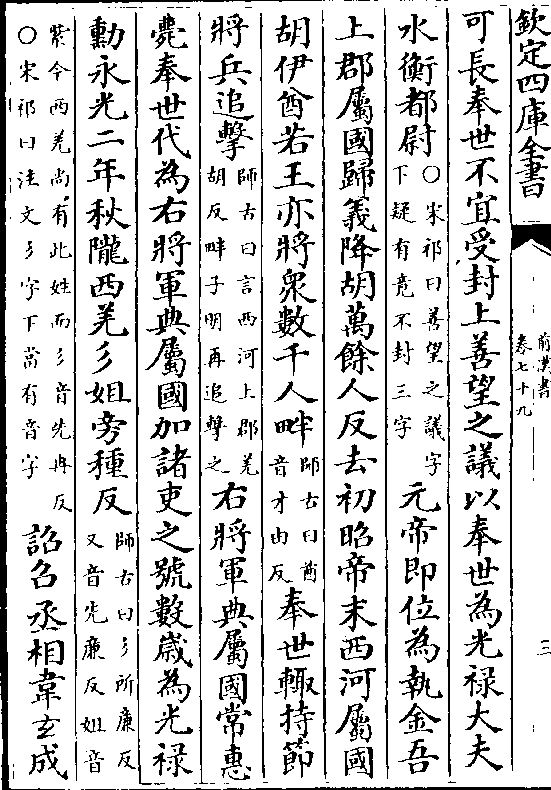 欽定四庫全書
前漢書
卷七十九
三
可長奉世不宜受封上善望之議以奉世為光禄大夫
水衡都尉○宋祁曰善望之議字
下疑有竟不封三字元帝即位為執金吾
上郡屬國歸義降胡萬餘人反去初昭帝末西河屬國
胡伊酋若王亦將衆數千人畔師古曰酋
音才由反奉世輙持節
將兵追擊師古曰言西河上郡羌
胡反畔子明再追擊之右將軍典屬國常惠
薨奉世代為右將軍典屬國加諸吏之號數嵗為光禄
勳永光二年秋隴西羌彡姐旁種反師古曰彡所廉反
又音先廉反姐音
紫今西羌尚有此姓而彡音先冉反
○宋祁曰注文彡字下當有音字詔召丞相韋玄成